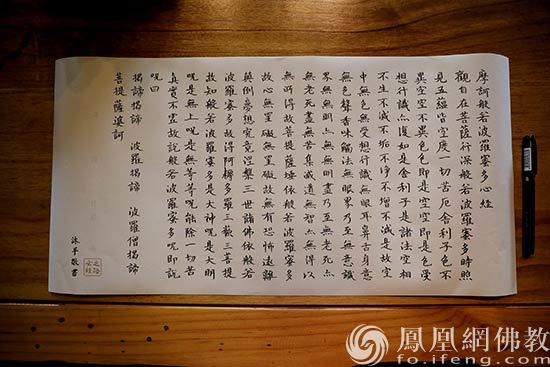 摩訶般若波羅蜜多心經
觀自在菩薩行深般若波羅蜜多時照
見五蘊皆空度一切苦厄舍利子色不
異空空不異色色即是空空即是色受
想行識亦復如是舍利子是諸法空相
不生不滅不垢不淨不增不減是故空
中無色無受想行識無眼耳鼻舌身意
無色聲香味觸法無眼界乃至無意識
界無無明亦無無明盡乃至無老死亦
無老死盡無苦集滅道無智亦無得以
無所得故菩提薩埵依般若波羅蜜多
故心無罣礙無罣礙故無有恐怖遠離
顛倒夢想究竟涅槃三世諸佛依般若
波羅蜜多故得阿耨多羅三藐三菩提
故知般若波羅蜜多是大神呪是大明
呪是無上呪是無等等呪能除一切苦
真實不虛故說般若波羅蜜多呪即說
呪曰
揭諦揭諦 波羅揭諦 波羅僧揭諦
菩提薩婆訶
沐手敬書
鳳凰網佛教
fo.ifeng.com